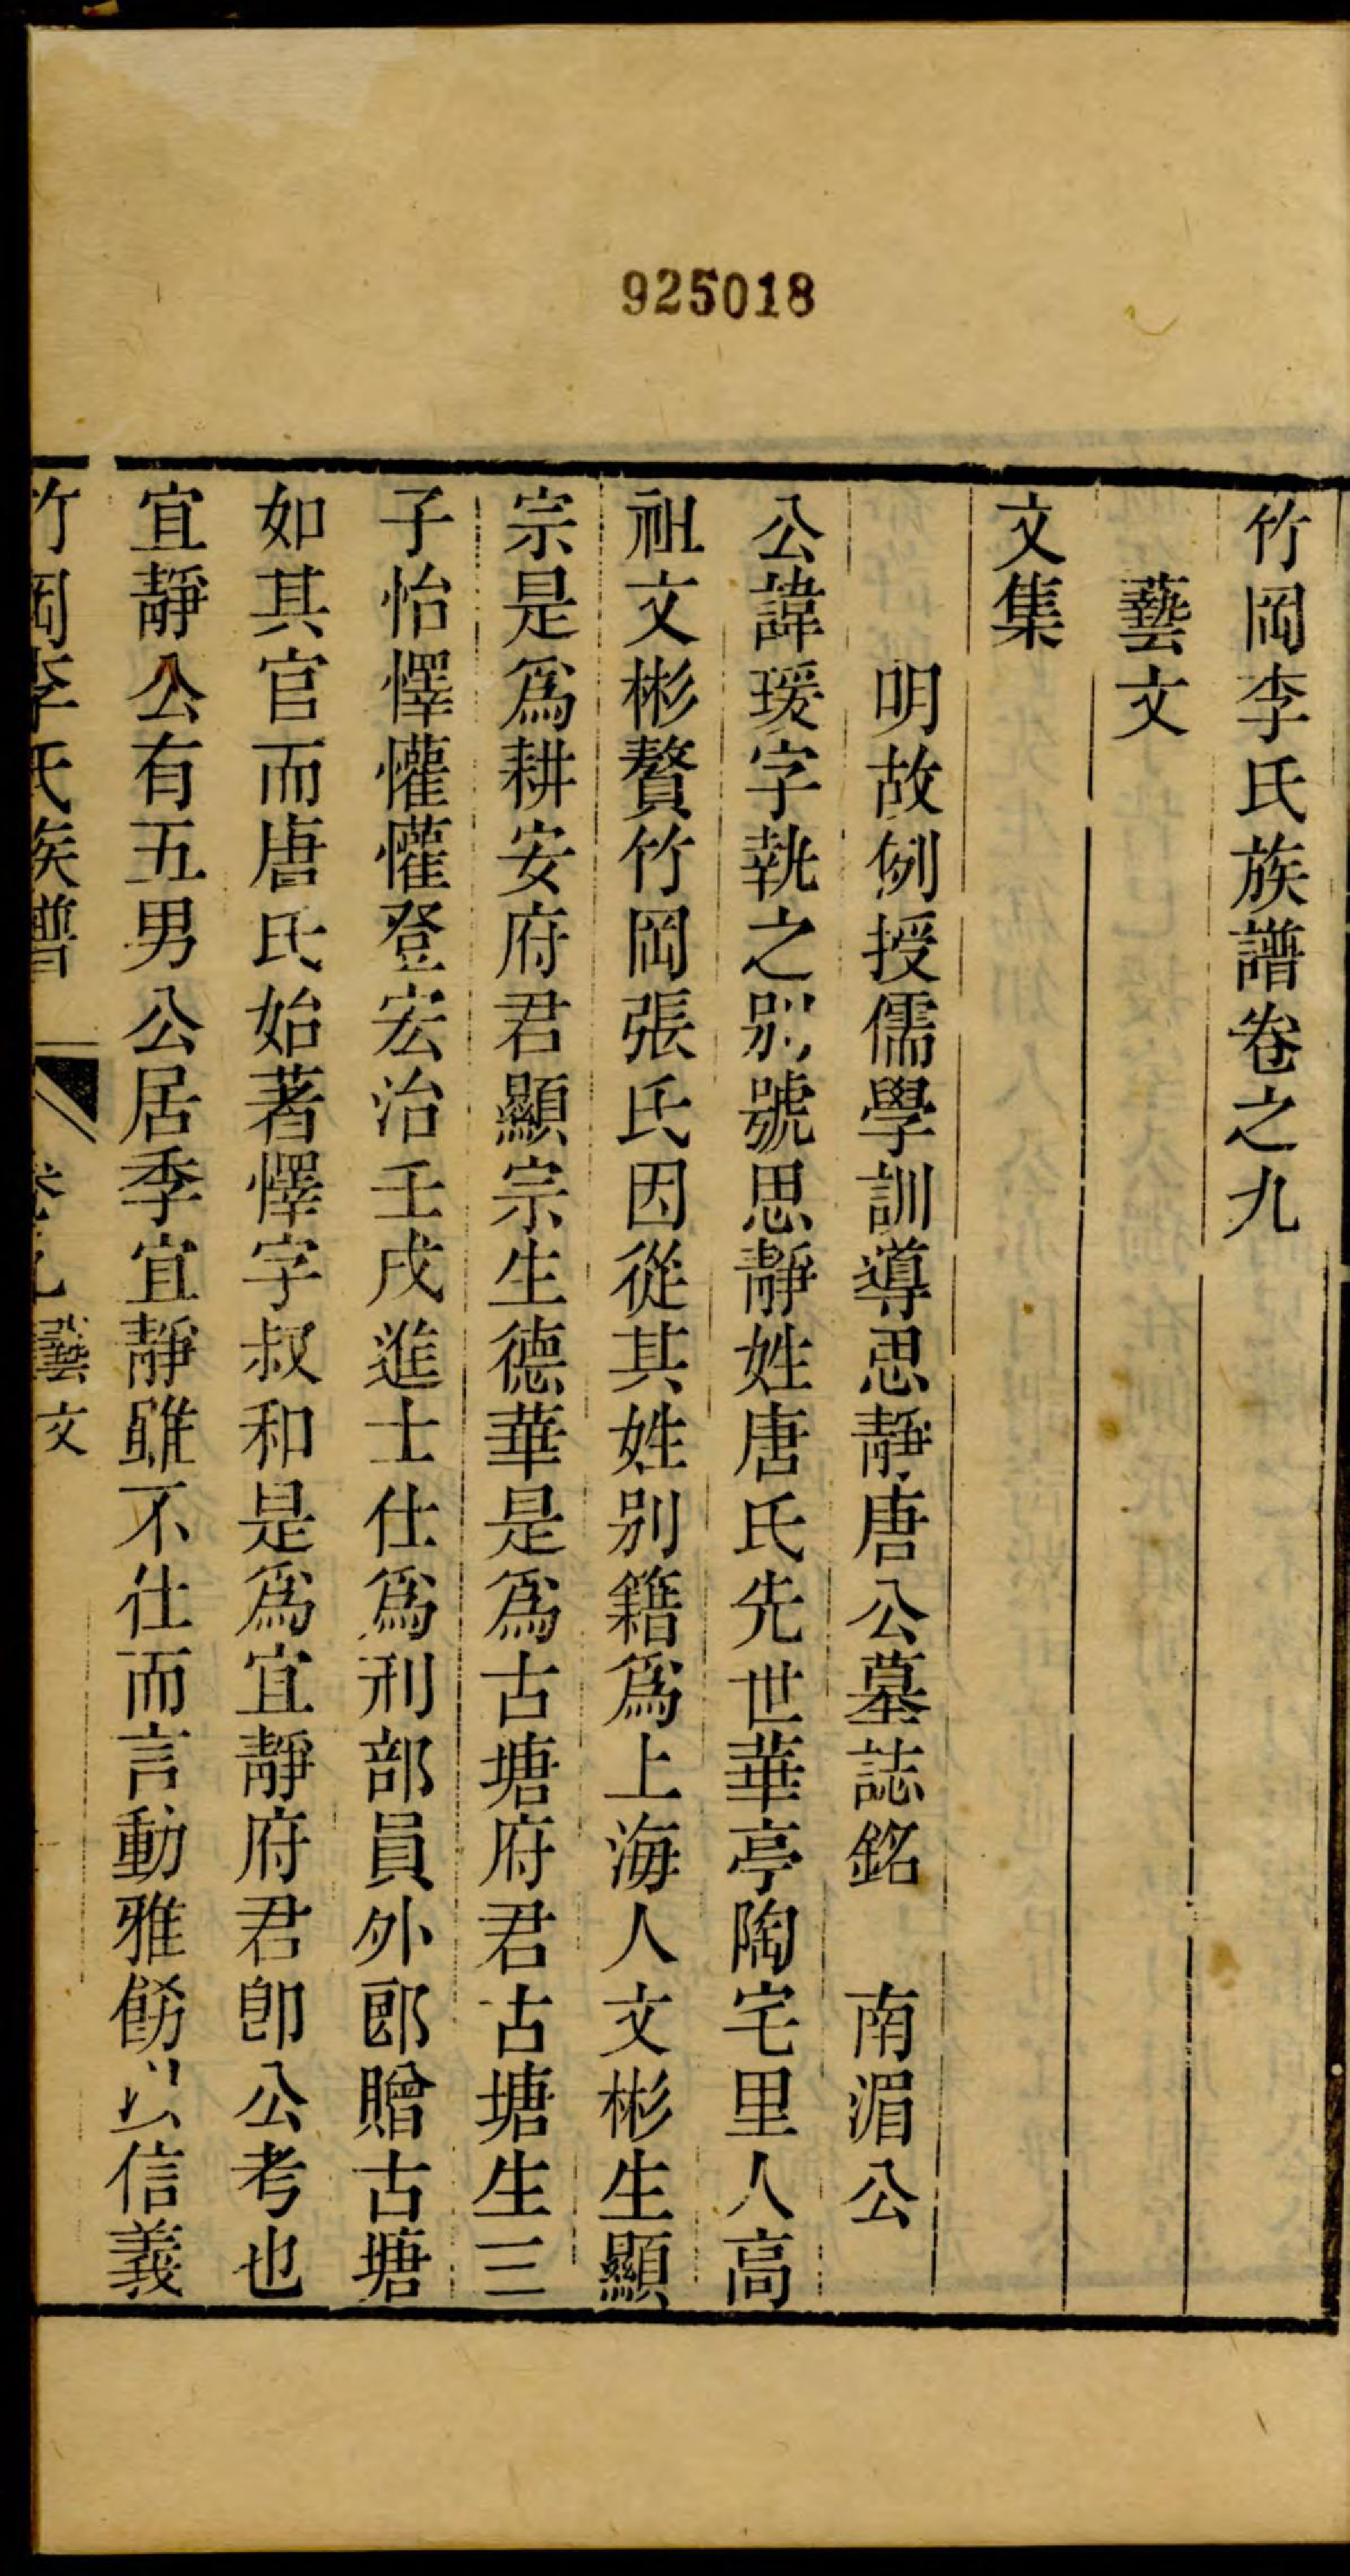 925018
竹岡李氏族譜卷之九
藝文
文集
明故例授儒學訓導思靜唐公墓誌銘　南湄公
公諱瑗字執之別號思靜姓唐氏先世華亭陶宅里人高
祖文彬贅竹岡張氏因從其姓別籍爲上海人文彬生顯
宗是爲耕安府君顯宗生德華是爲古塘府君古塘生三
子怡懌懽懽登宏治壬戌進士仕爲刑部員外郎贈古塘
如其官而唐氏始著懌字叔和是爲宜靜府君卽公考也
宜靜公有五男公居季宜靜雖不仕而言動雅飭以信義
竹岡李氏族譜　卷之九藝文